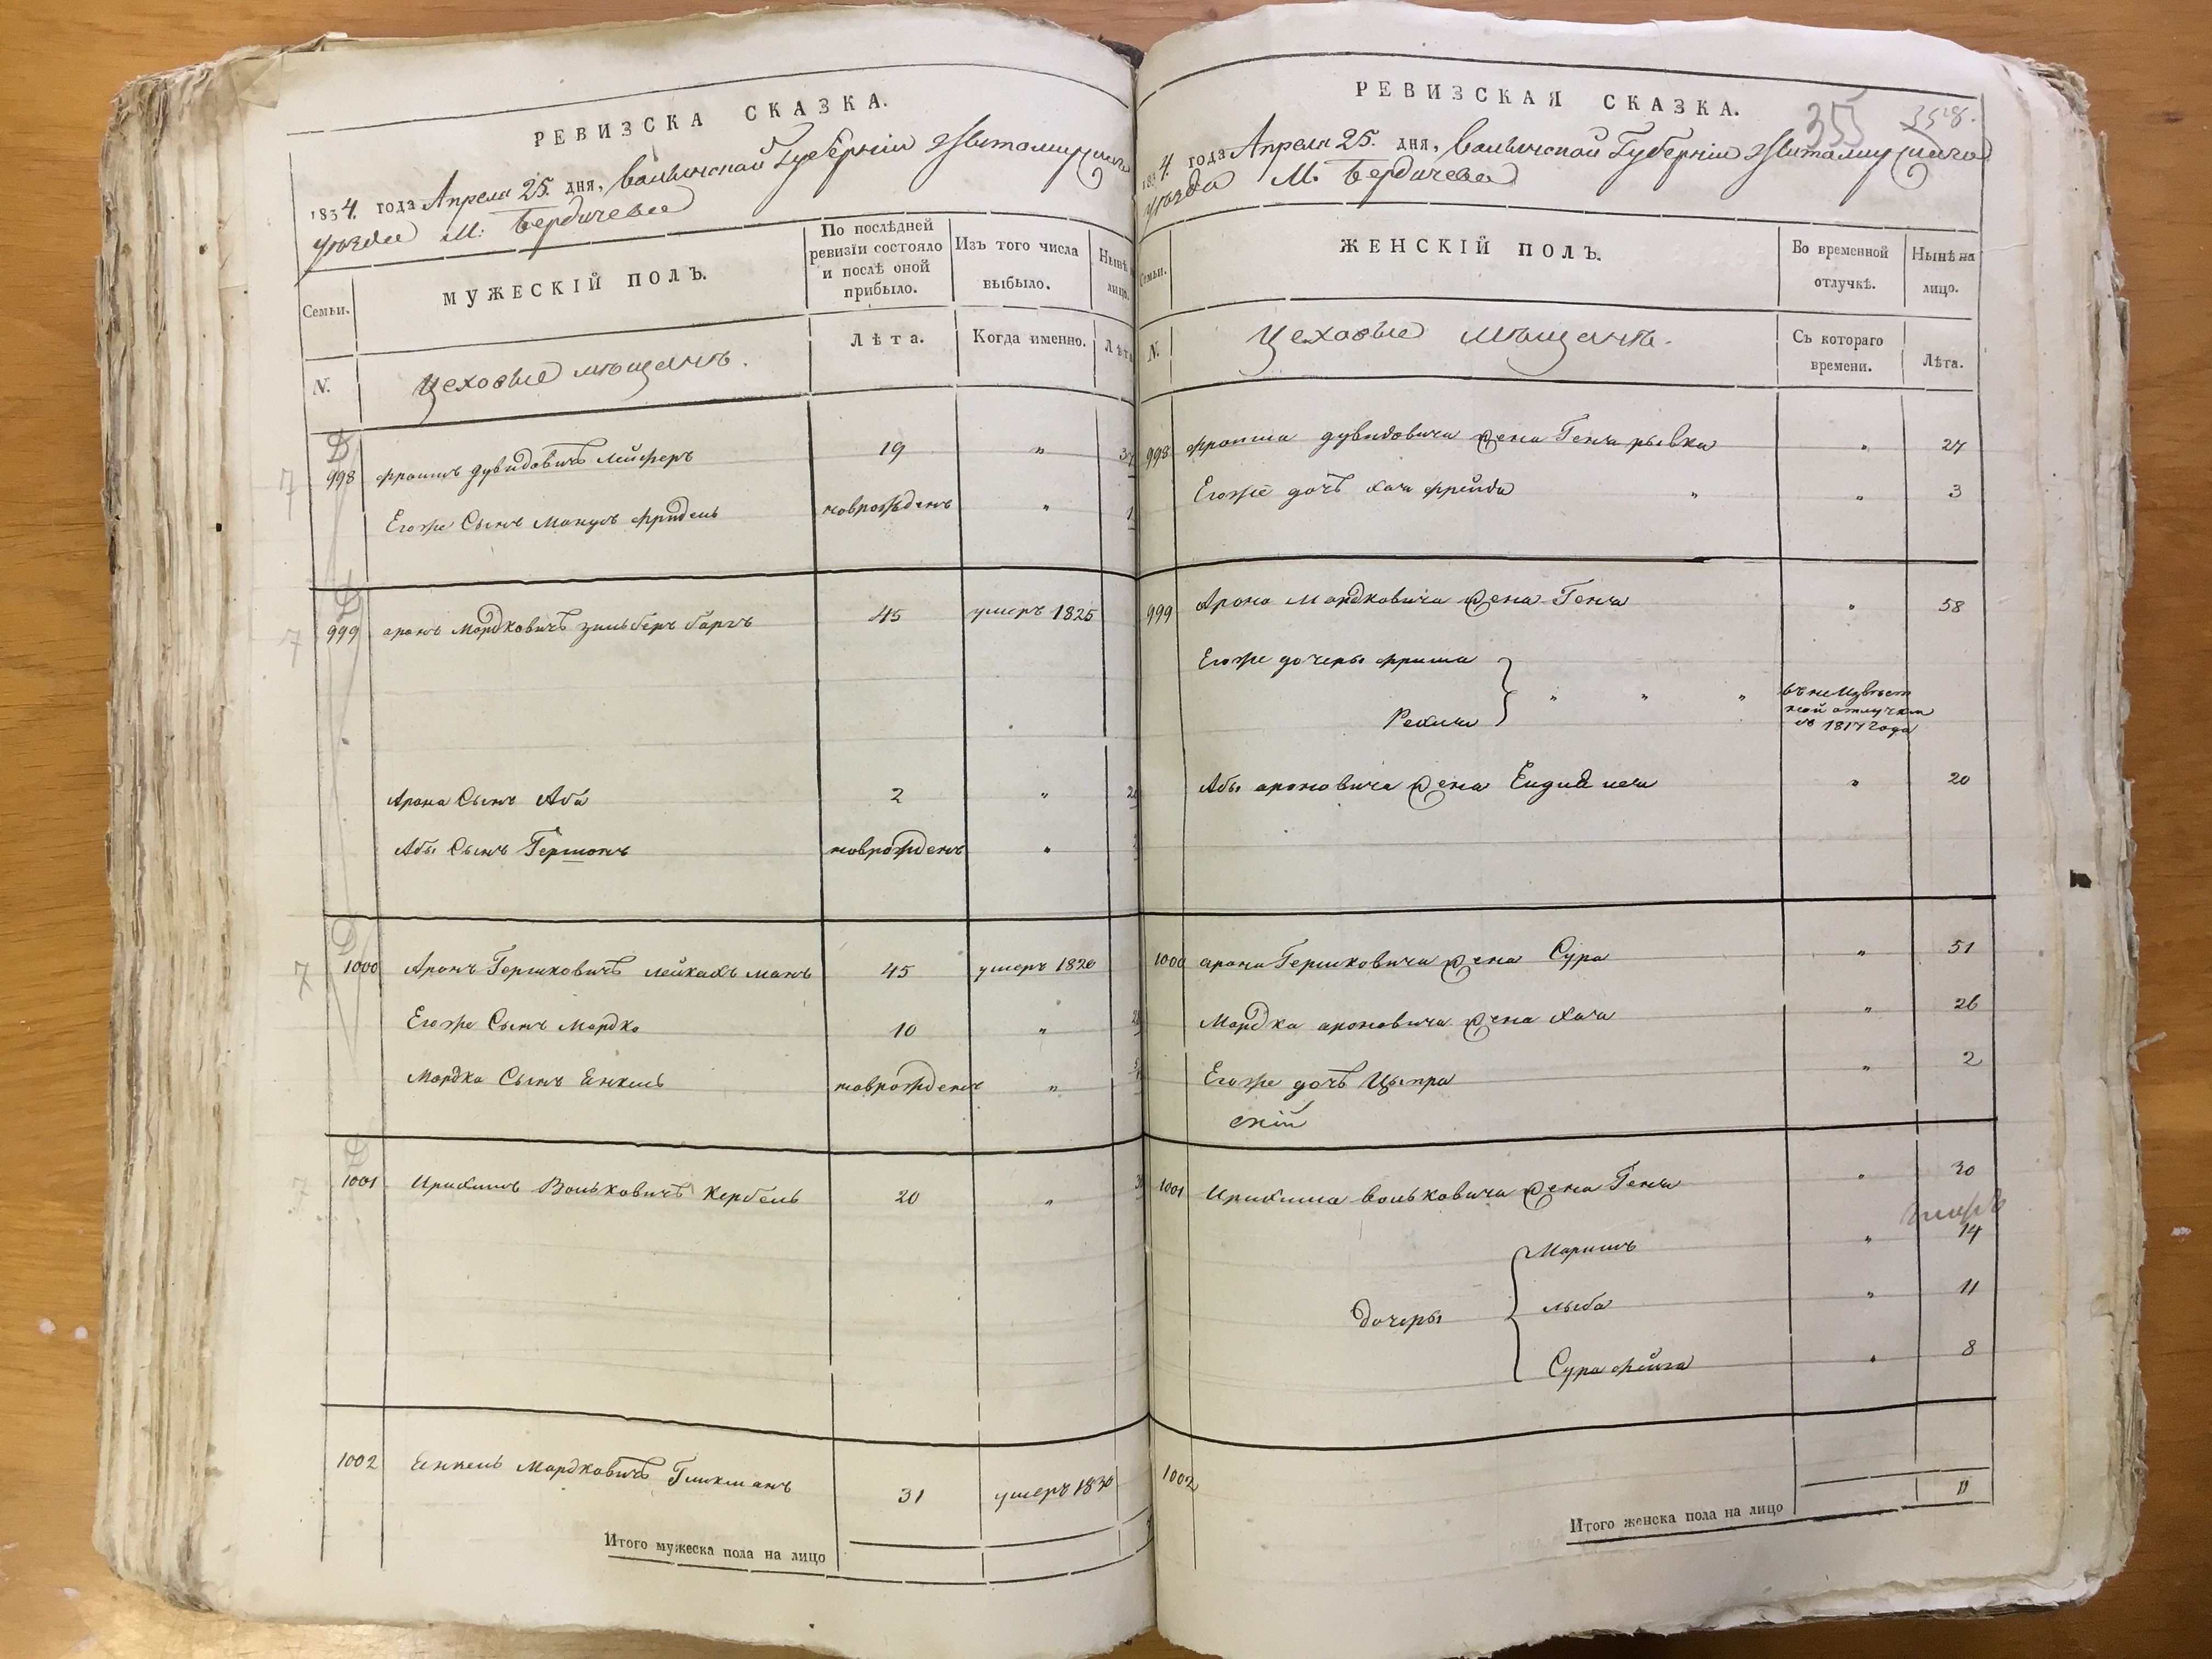 РЕВИЗСКА СКАЗКА.
1834. года Апреля 25. дня, Волынской Губернии Житомирскаго
уезда М: Бердичева
Семьи.
МУЖЕСКІЙ ПОЛЪ.
По послѣдней
ревизіи состояло
и послѣ оной
прибыло.
Изъ того числа
выбыло.
Нынѣ
лицо.
N.
Цеховые мещанъ.
Лѣта.
Когда именно.
Лѣта
998 Фроимъ Дувидовичъ Лейферъ 19 "
Егоже Сынъ Манусъ Фридель новрожденъ "
999 Аронъ Мордковичъ Зильберъ баргъ 45 умеръ 1825
Арона Сынъ Аба 2 "
Абы Сынъ Гершонъ новрожденъ "
1000 Аронъ Гершковичъ Лейкахъ манъ 45 умеръ 1820
Егоже Сынъ Мордко 10 "
Мордка Сынъ Енкель новрожденъ "
1001 Ицикъ Волковичъ Кербель 20 "
1002 Енкель Мордковичъ Гликманъ 31 умеръ 1830
Итого мужеска пола на лицо
РЕВИЗСКАЯ СКАЗКА.
355
1834. года Апреля 25. дня, Волынской Губернии Житомирскаго
уезда М. Бердичева
Семьи.
ЖЕНСКІЙ ПОЛЪ.
Во временной
отлучкѣ.
Нынѣ на
лицо.
N.
Цеховые мещанъ.
Съ котораго
времени.
Лѣта.
998 Фроима Дувидовича жена Геня рывка " 27
Егоже дочь Хая Фрейда " " 3
999 Арона Мордковича жена Геня " 58
Егоже дочеры Фрима
Рехля " " " въ неизвест
ной отлучки
съ 1817 года
Абы Ароновича жена " 20
1000 Арона Гершковича жена Сура " 51
Мордка Ароновича жена Хая " 26
Егоже дочь Цыпра " 2
скій
1001 Волковича жена Геня " 30
умерь
Маримъ " 14
дочеры лыба " 11
Сура фейга " 8
1002
Итого женска пола на лицо 11